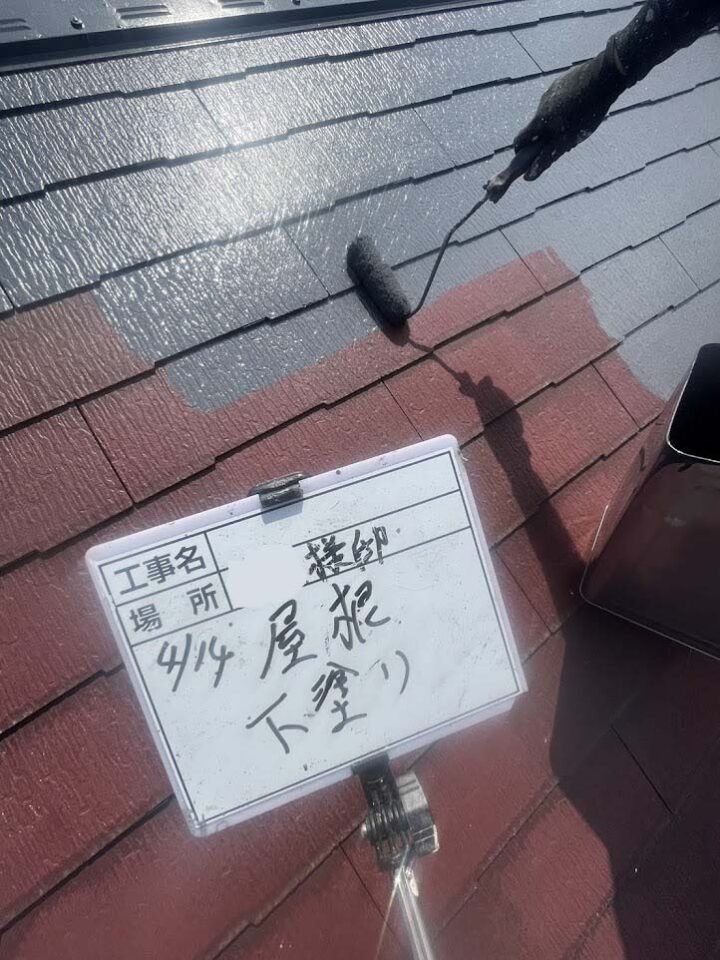 工事名 様邸
場所
4/14 屋根
下塗り